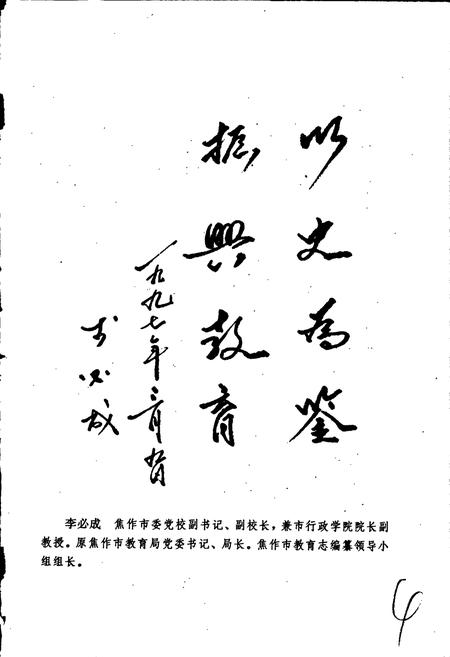 以史为鉴
振兴教育
一九九七年三月
李必成
李必成　焦作市委党校副书记、副校长，兼市行政学院院长副
教授。原焦作市教育局党委书记、局长。焦作市教育志编纂领导小
组组长。
4